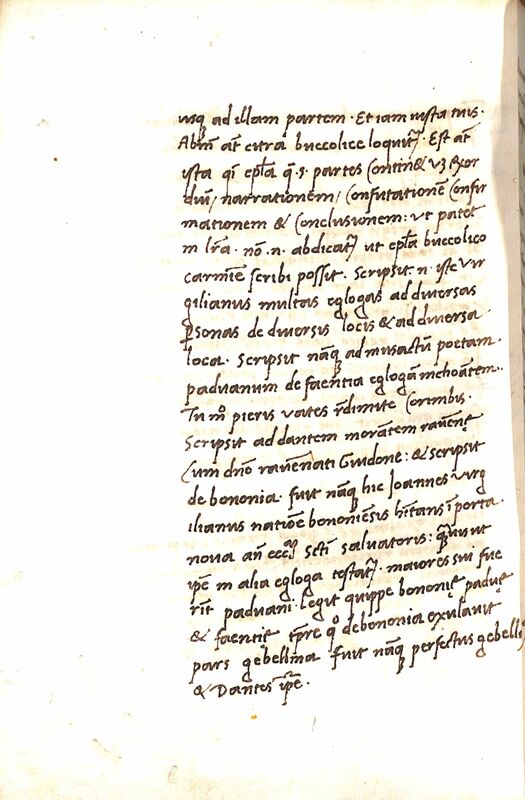 usq ad illam partem . Et iam iusta tuis .
Abin̄ at̄ citra buccolice loquit̃ . Est at̄
ista qi epl̄a q̄ .5. partes Contin& vz exor
diū / narrationem / Confutationē Confir
mationem & Conclusionem : ut patet
in lr̄a . nō .n. abdicat̃ ut epl̄a buccolico
carmīe scribi possit . Scripsit .n. iste Vir
gilianus multas eglogas ad diversas
ꝑsonas de diversis locis & ad diversa
loca . Scripsit nāq ad musactū poetam .
paduanum de faentia eglogā inchoātem .
Tu mō pieris vates rēdimite Corimbis .
Scripsit ad dantem morātem ravēnę
Cum dnō ravēnati Guidone : & scripsit
de bononia . fuit nāq hic Joannes virg
ilianus natiōe bononiēsis hītans ī porta .
nova an̄ ecc̄ Scti salvatoris :
ip̄e in alia egloga testat̃ . maiores sui fue
rīt paduani . legit quippe bononię paduę
& faentię tp̄re q̊ de bononia exulavit
pars gebellina fuit nāq perfectus gebellī
& Dantes ip̄e .